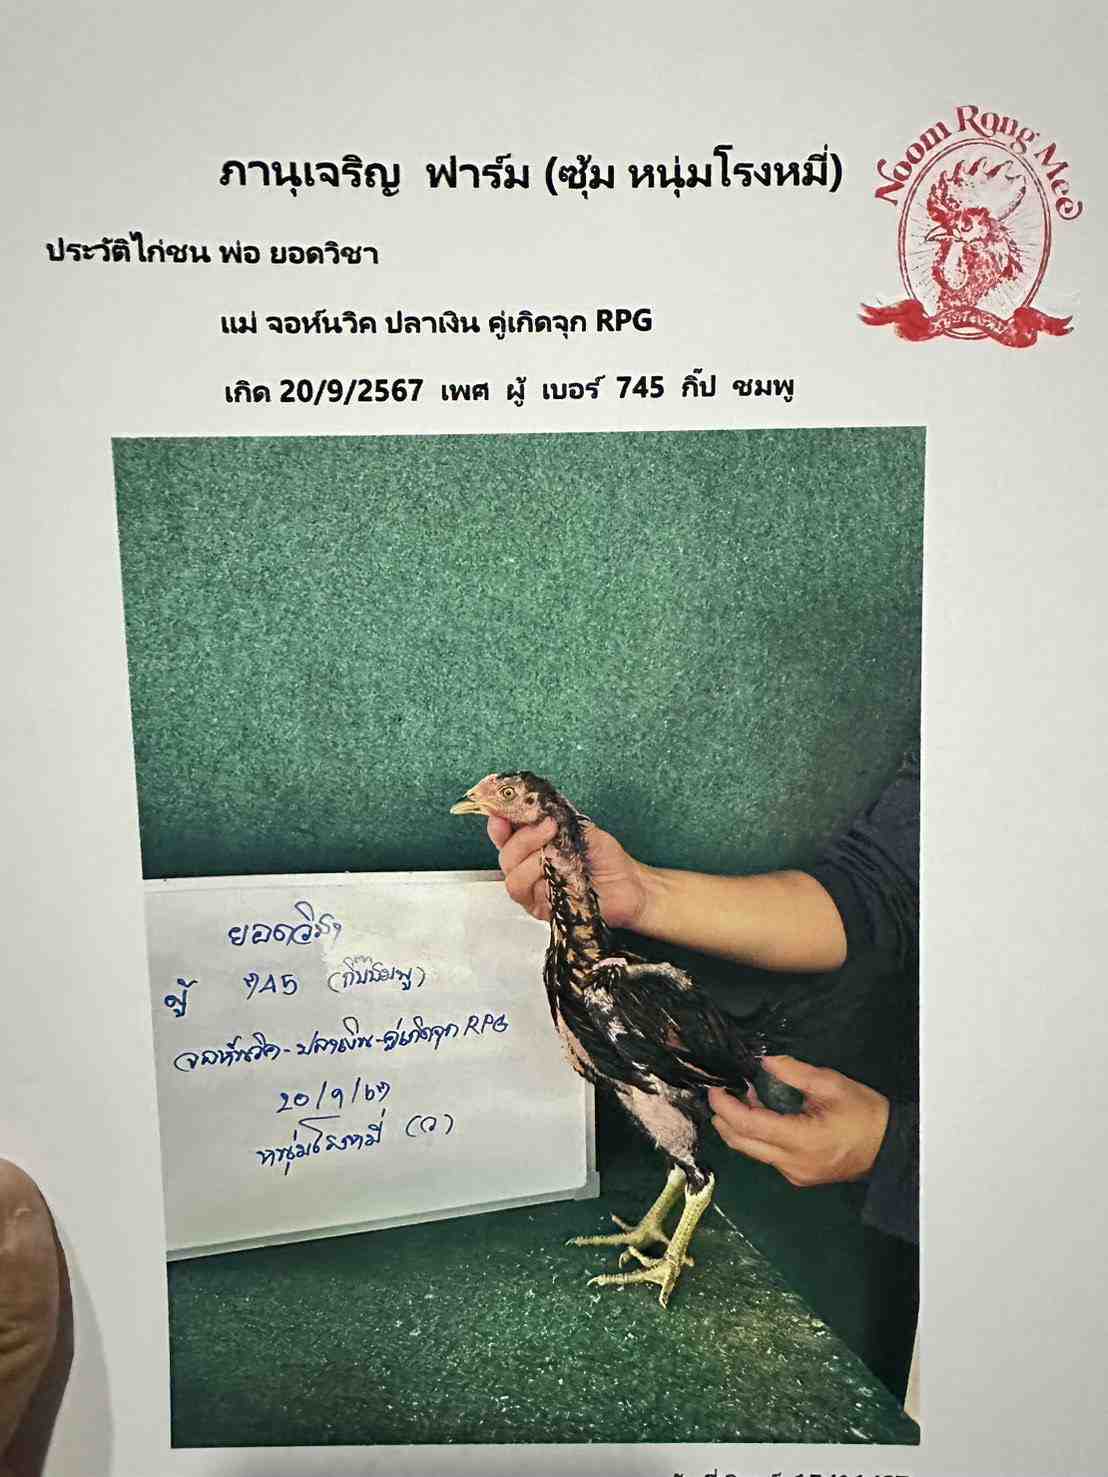 ภานุเจริญ ฟาร์ม (ซุ้ม หนุ่มโรงหมี่)
Noom Rong Mee
ประวัติไก่ชน พ่อ ยอดวิชา
แม่ จอห์นวิค ปลาเงิน คู่เกิดจุก RPG
เกิด 20/9/2567 เพศ ผู้ เบอร์ 745 กิ๊ป ชมพู
ยอดวิชา
ผู้ 745 (กิ๊บชมพู)
จอห์นวิค-ปลาเงิน-คู่เกิดจุก RPG
20/9/67
หนุ่มโรงหมี่ (ว)